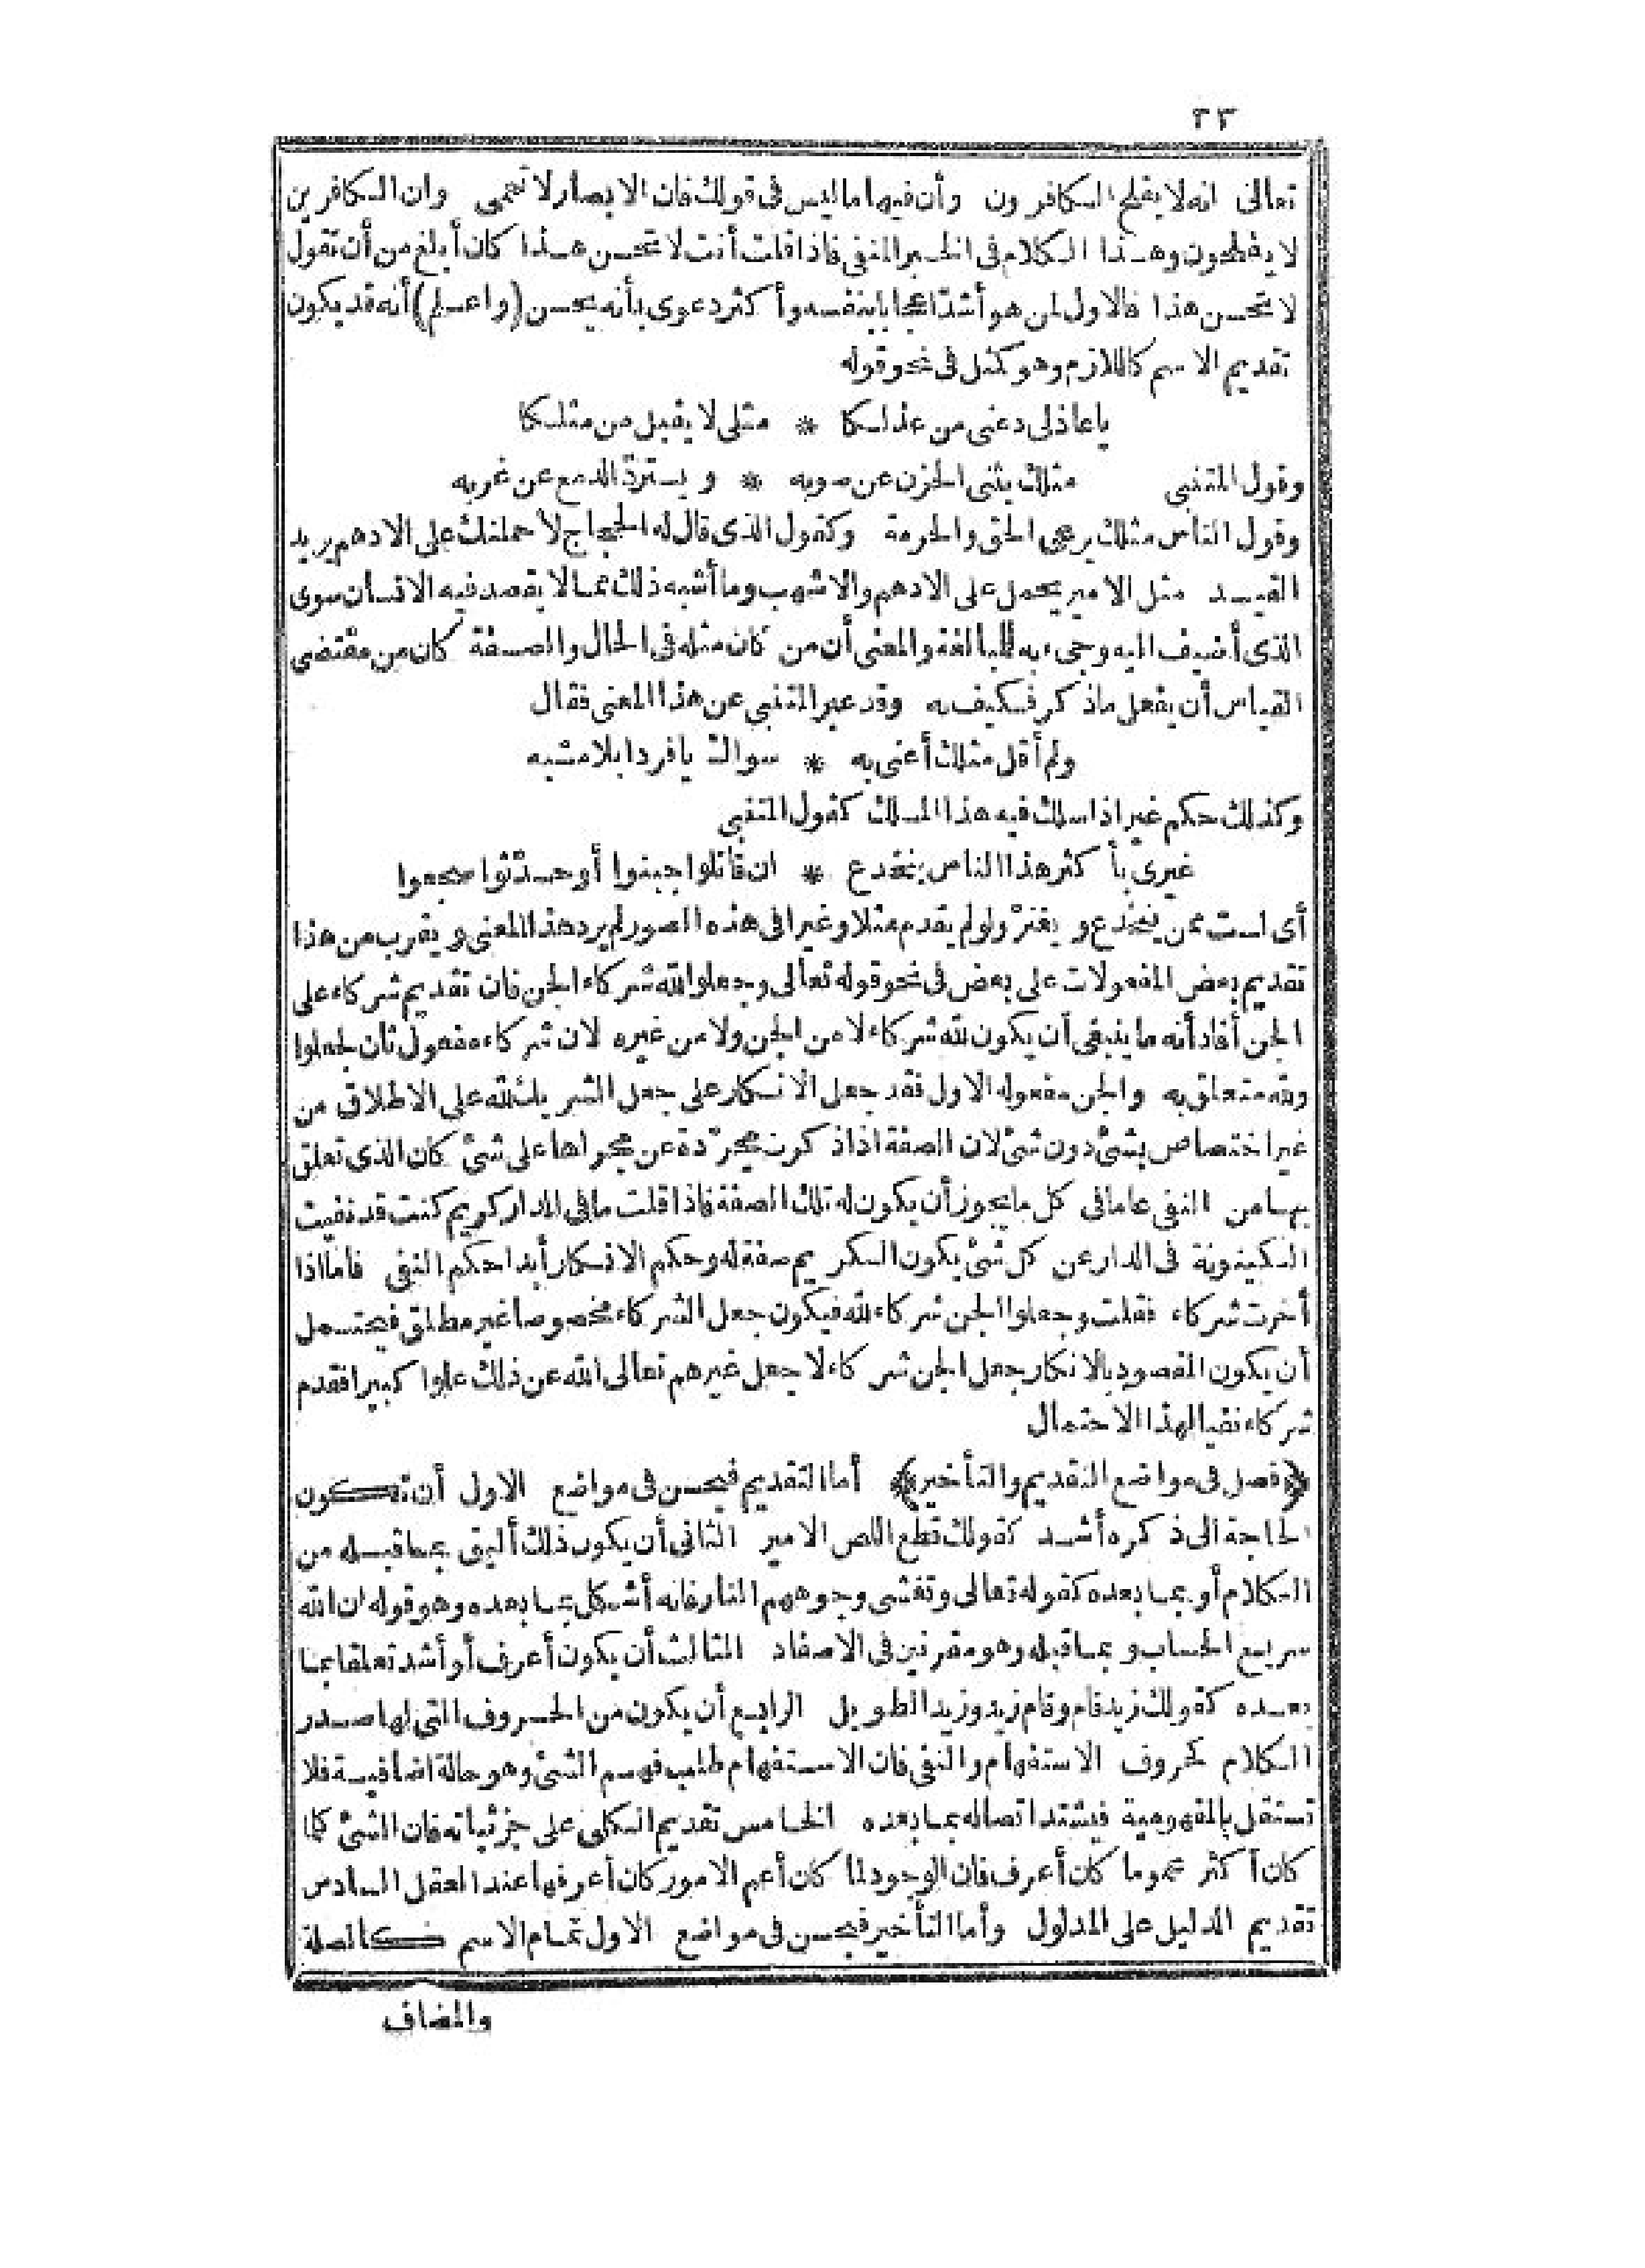 ٣٣
تعالى انه لا يفلح الكافرون وأن فيها ما ليس فى قولك فان الابصار لا تعمى وان الكافرين
لا يفلحون وهذا الكلام فى الخبر المنفى فاذا قلت أنت لا تحسن هذا كان أبلغ من أن تقول
لا تحسن هذا فالاول لمن هو أشدّ اعجابا بنفسه وأكثر دعوى بأنه يحسن (واعلم) أنه قد يكون
تقديم الاسم كاللازم وهو كمثل فى نحو قوله
يا عاذلى دعنى من عذلكا * مثلى لا يقبل من مثلكا
وقول المتنبى مثلك يثنى الحزن عن صوبه * ويستردّ الدمع عن غربه
وقول الناس مثلك رعى الحق والحرمة وكقول الذى قال له الحجاج لأحملنك على الادهم يريد
القيد مثل الامير يحمل على الادهم والاشهب وما أشبه ذلك مما لا يقصد فيه الانسان سوى
الذى أضيف اليه وجىء به للمبالغة والمعنى أن من كان مثله فى الحال والصفة كان من مقتضى
القياس أن يفعل ما ذكر فكيف به وقد عبر المتنبى عن هذا المعنى فقال
ولم أقل مثلك أعنى به * سواك يا فردا بلا مشبه
وكذلك حكم غير اذا سلك فيه هذا المسلك كقول المتنبى
غيرى بأكثر هذا الناس ينخدع * ان قاتلوا جبنوا أو حدّثوا شجعوا
أى لست ممن ينخدع ويغترّ ولو لم يقدم مثلا وغيرا فى هذه الصور لم يرد هذا المعنى ويقرب من هذا
تقديم بعض المفعولات على بعض فى نحو قوله تعالى وجعلوا لله شركاء الجن فان تقديم شركاء على
الجن أفاد أنه ما ينبغى أن يكون لله شركاء لا من الجن ولا من غيره لان شركاء مفعول ثان لجعلوا
ولله متعلق به والجن مفعوله الاول فقد جعل الانكار على جعل الشريك لله على الاطلاق من
غير اختصاص بشئ دون شئ لان الصفة اذا ذكرت مجرّدة عن مجراها على شئ كان الذى تعلق
بها من النفى عاما فى كل ما يجوز أن يكون له تلك الصفة فاذا قلت ما فى الدار كريم كنت قد نفيت
الكينونة فى الدار عن كل شئ يكون الكريم صفة له وحكم الانكار أبدا حكم النفى فاما اذا
أخرت شركاء فقلت وجعلوا الجن شركاء لله فيكون جعل الشركاء مخصوصا غير مطلق فيحتمل
أن يكون المقصود بالانكار جعل الجن شركاء لا جعل غيرهم تعالى الله عن ذلك علوا كبيرا فقدم
شركاء نفيا لهذا الاحتمال
﴿فصل فى مواضع التقديم والتأخير﴾ أما التقديم فيحسن فى مواضع الاول أن تكون
الحاجة الى ذكره أشد كقولك قطع اللص الامير الثانى أن يكون ذلك أليق بما قبله من
الكلام أو بما بعده كقوله تعالى وتغشى وجوههم النار فانه أشكل بما بعده وهو قوله ان الله
سريع الحساب وبما قبله وهو مقرنين فى الاصفاد الثالث أن يكون أعرف أو أشد تعلقا بما
بعده كقولك زيد قام وقام زيد وزيد الطويل الرابع أن يكون من الحروف التى لها صدر
الكلام كحروف الاستفهام والنفى فان الاستفهام طلب فهم الشئ وهو حالة اضافية فلا
تستقل بالمفهومية فيشتد اتصاله بما بعده الخامس تقديم الكلى على جزئياته فان الشئ كلما
كان أكثر عموما كان أعرف فان الوجود لما كان أعم الامور كان أعرفها عند العقل السادس
تقديم الدليل على المدلول وأما التأخير فيحسن فى مواضع الاول تمام الاسم كالصلة
والمضاف